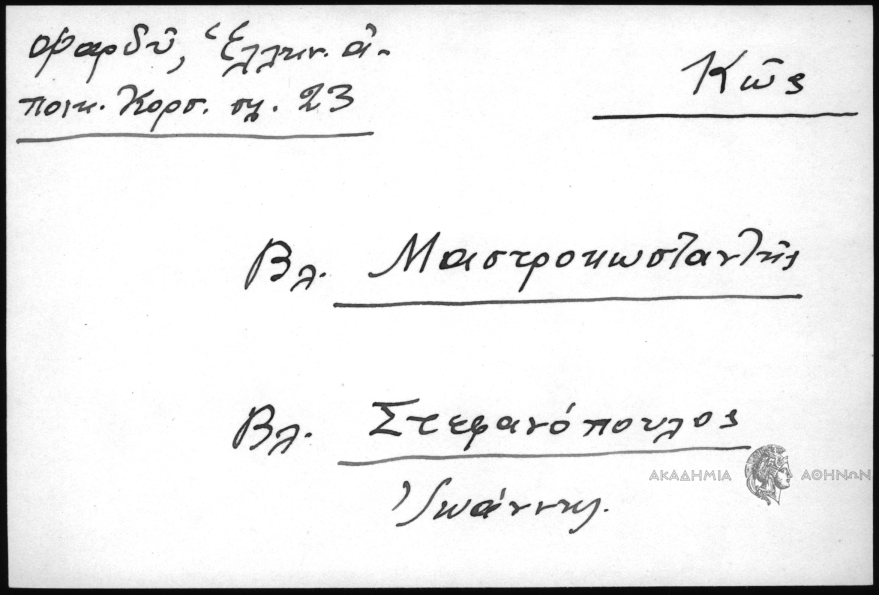 Φαρδῦ, Ἑλλην. ἀ-
ποικ. Κορσ. σχ. 23
Κῶς
Βλ. Μαστροκωσταντῆς
Βλ. Στεφανόπουλος
Ἰωάννης.
ΑΚΑΔΗΜΙΑ ΑΘΗΝΩΝ